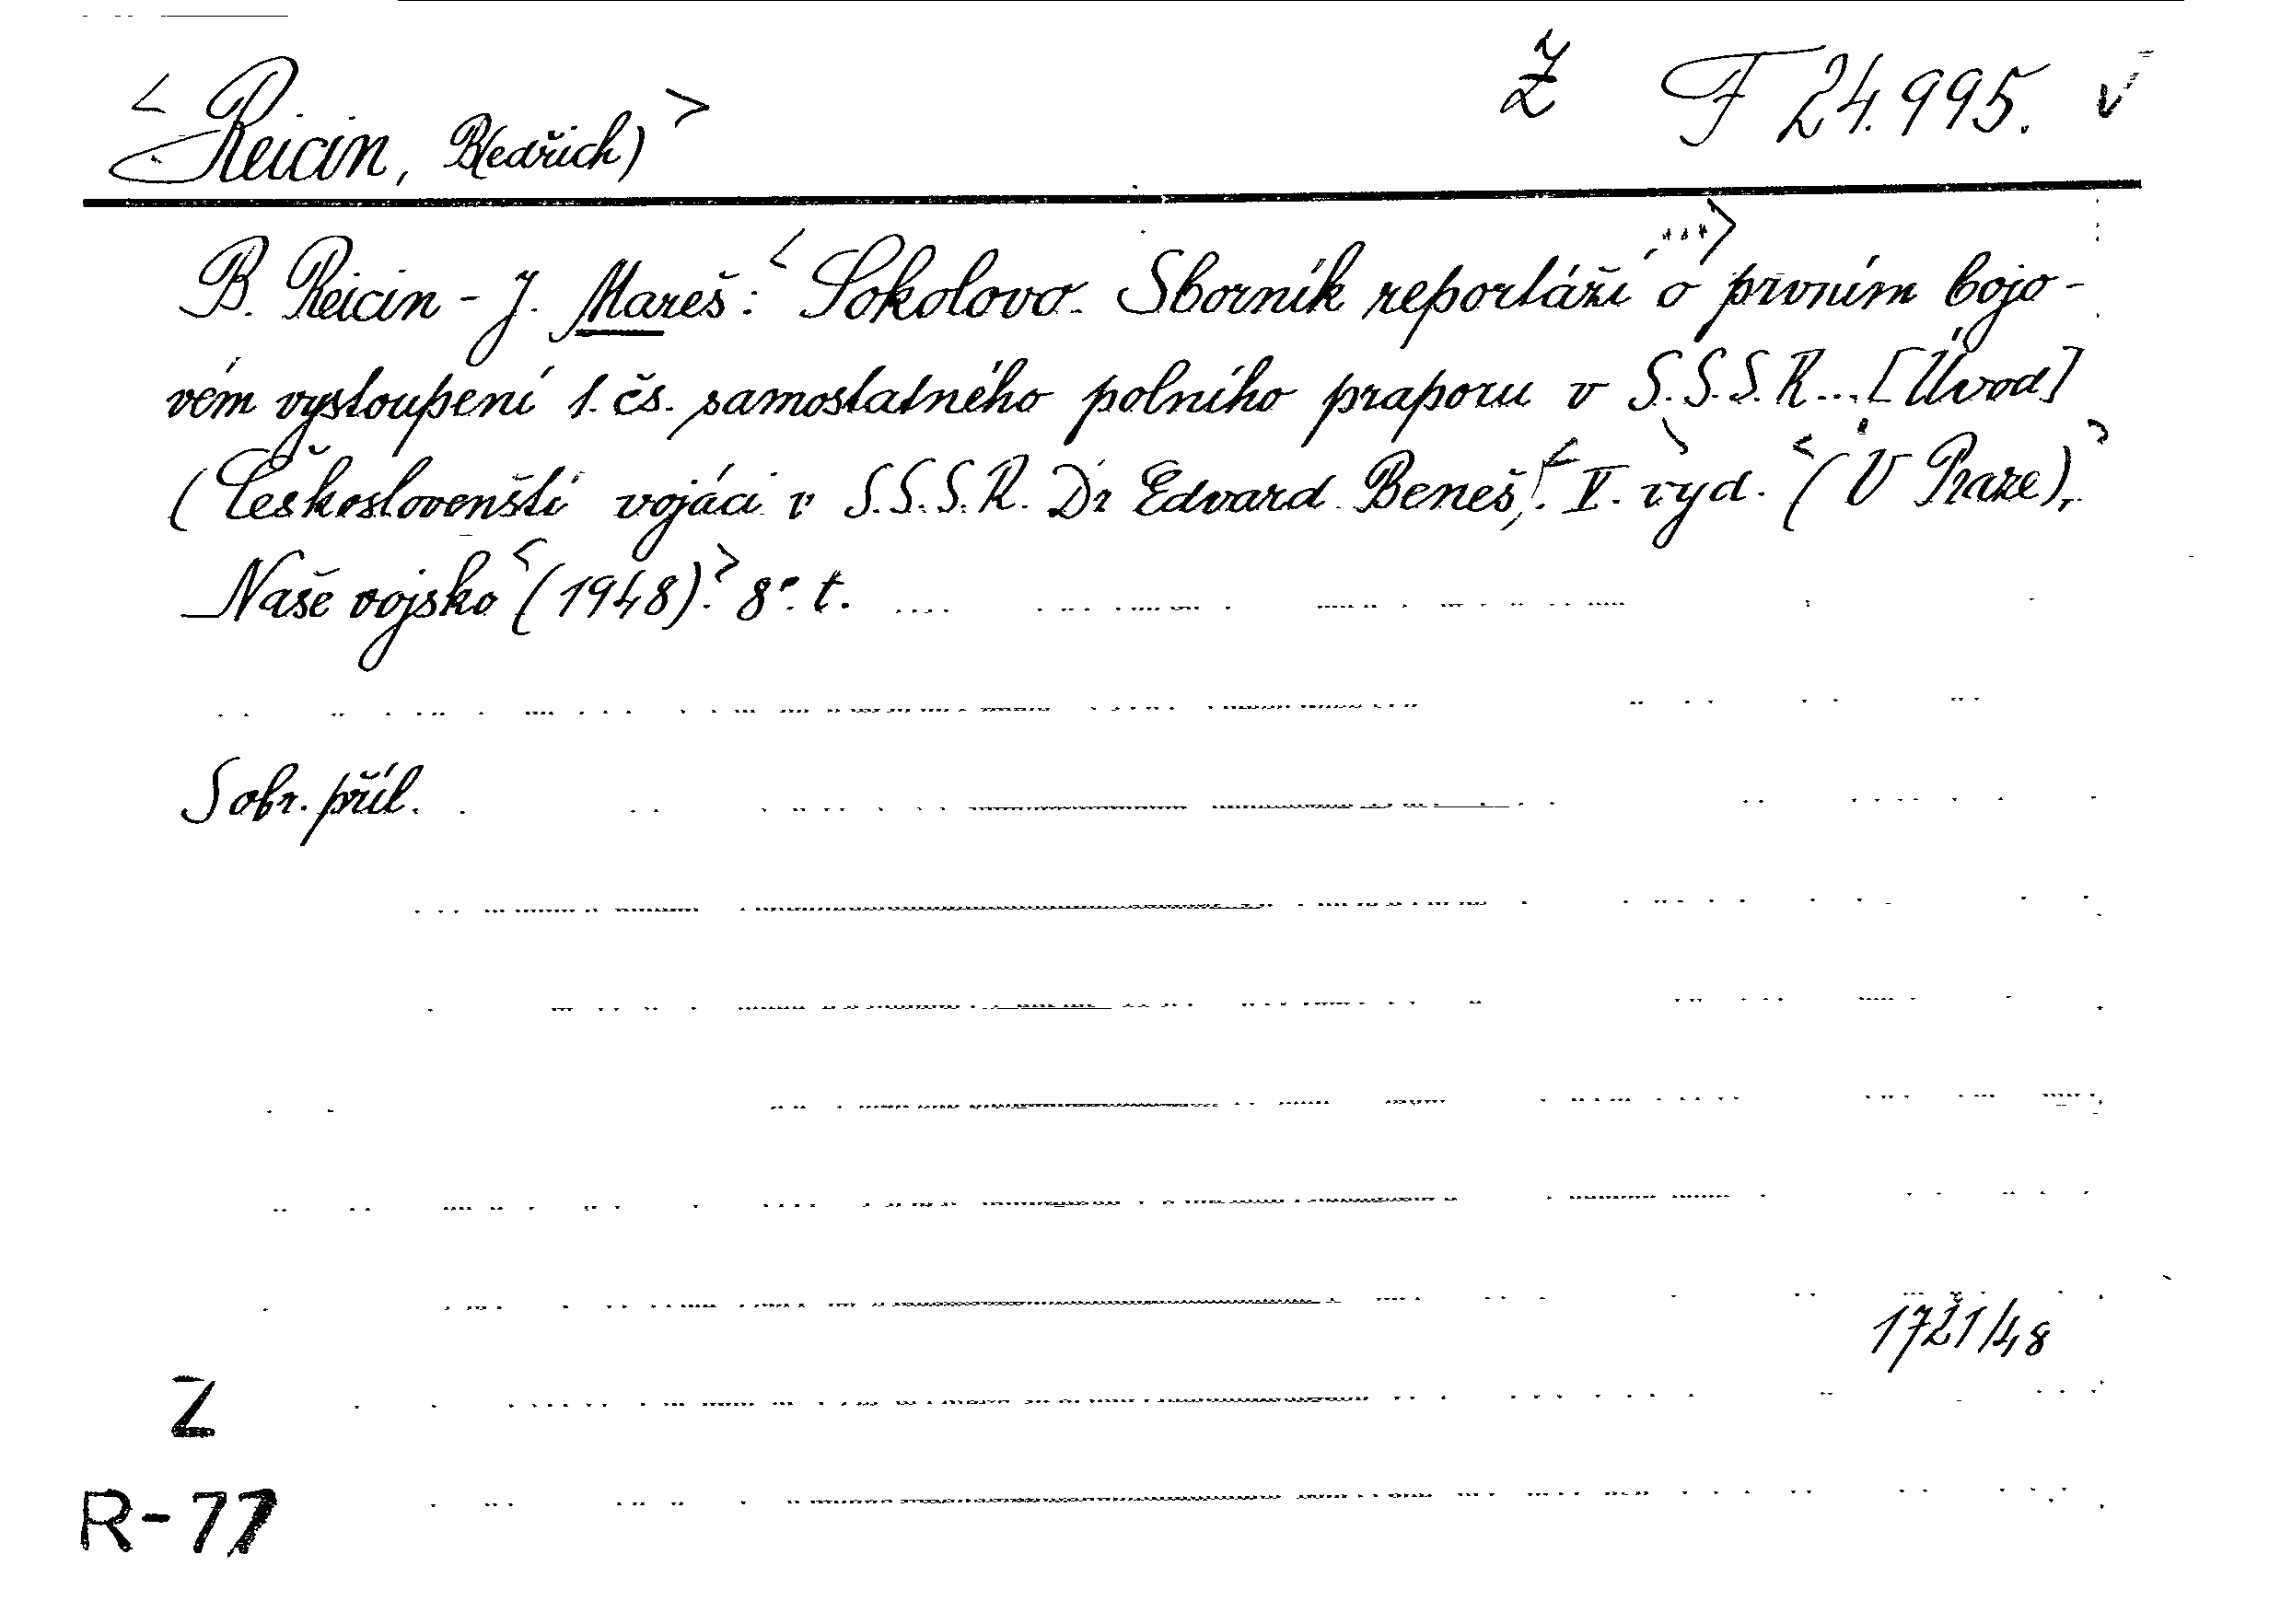 <Reicin, B(edřich)> Ž F 24.995. v
B. Reicin - J. Mareš: <Sokolovo. Sborník reportáží ...> o prvním bojo-
vém vystoupení 1. čs. samostatného polního praporu v S.S.S.R... [Úvod]
(Českoslovenští vojáci v S.S.S.R. Dr Edvard Beneš). II. vyd. <(V Praze),>
Naše vojsko <(1948).> 8°. t.
S obr. příl.
1721/48
Z
R-77